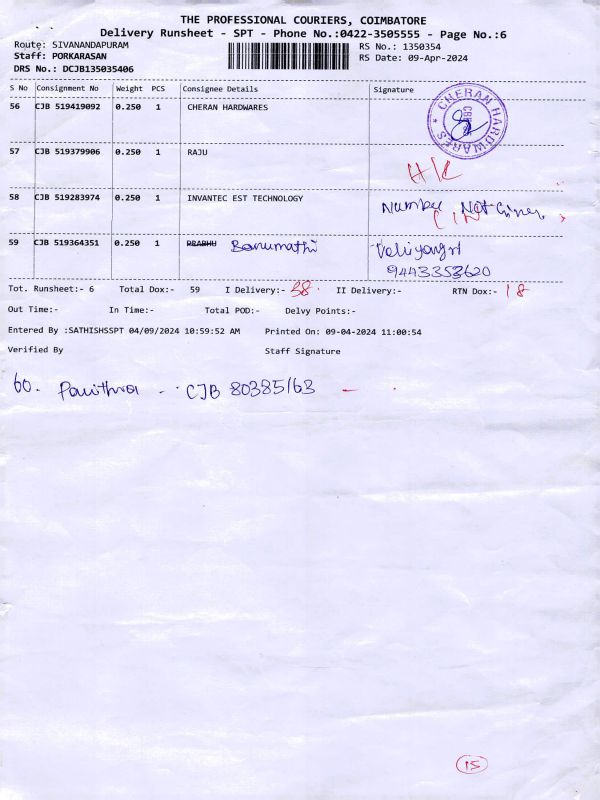 THE PROFESSIONAL COURIERS, COIMBATORE
Delivery Runsheet - SPT - Phone No.:0422-3505555 - Page No.:6
Route: SIVANANDAPURAM RS No.: 1350354
Staff: PORKARASAN RS Date: 09-Apr-2024
DRS No.: DCJB135035406
S No Consignment No Weight PCS Consignee Details Signature
56 CJB 519419092 0.250 1 CHERAN HARDWARES
CHERAN HARDWARES
57 CJB 519379906 0.250 1 RAJU
58 CJB 519283974 0.250 1 INVANTEC EST TECHNOLOGY Number Not Given
59 CJB 519364351 0.250 1 PRABHU Banumathi
9443353620
Tot. Runsheet:- 6 Total Dox:- 59 I Delivery:- 38 II Delivery:- RTN Dox:- 18
Out Time:- In Time:- Total POD:- Delvy Points:-
Entered By :SATHISHSSPT 04/09/2024 10:59:52 AM Printed On: 09-04-2024 11:00:54
Verified By Staff Signature
60. Pavithra - CJB 80385163 -
15